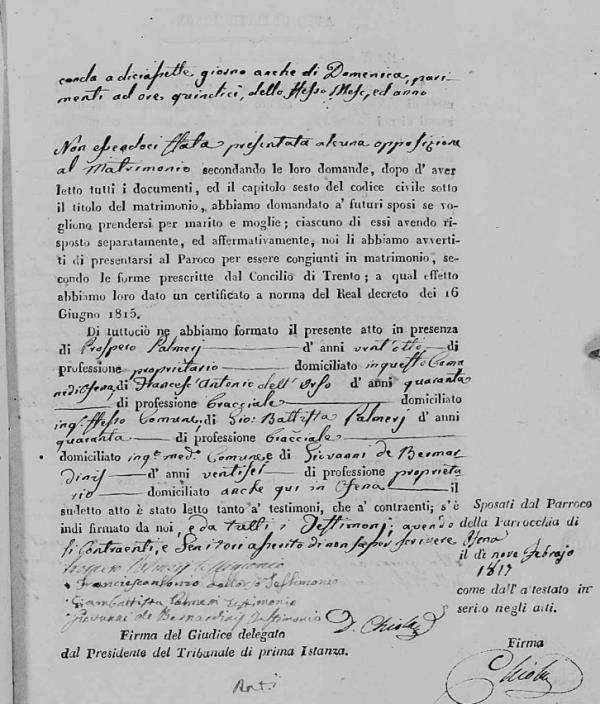 conda a diciasette giorno anche di Domenica, pari
menti ad ore quindici, dello stesso Mese, ed anno
Non essendoci stata presentata alcuna opposizione
al Matrimonio secondando le loro domande, dopo d' aver
letto tutti i documenti, ed il capitolo sesto del codice civile sotto
il titolo del matrimonio, abbiamo domandato a' futuri sposi se vo-
gliono prendersi per marito e moglie; ciascuno di essi avendo ri-
sposto separatamente, ed affermativamente, noi li abbiamo avverti-
ti di presentarsi al Paroco per essere congiunti in matrimonio, se-
condo le forme prescritte dal Concilio di Trento; a qual effetto
abbiamo loro dato un certificato a norma del Real decreto dei 16
Giugno 1815.
Di tuttociò ne abbiamo formato il presente atto in presenza
di Prospero Palmerj d' anni vent'otto di
professione proprietario domiciliato in questo Comu
ne di Ofena, di Francesc' Antonio dell' Orso d' anni quaranta
di professione Bracciale domiciliato
in q.o stesso Comune, di Gio: Battista Palmerj d' anni
quaranta di professione Bracciale
domiciliato in q.o med.o Comune e di Giovanni de Bernar
dinis d' anni ventisei di professione proprieta
rio domiciliato anche qui in Ofena il
sudetto atto è stato letto tanto a' testimoni, che a' contraenti; s'è
indi firmato da noi, e da tutti i Testimonj; avendo
li Contraenti, e Genitori asserito di non saper scrivere
Prospero Palmerj Testimonio
Francescantonio dell'orso Testimonio
Giambattista Palmerj Testimonio
Giovanni de Bernardinis Testimonio
D. Chiola
Firma del Giudice delegato
dal Presidente del Tribunale di prima Istanza.
Sposati dal Parroco
della Parrocchia di
Ofena
il dì nove Febrajo
1817
come dall' attestato in-
serito negli atti.
Firma
Chiola